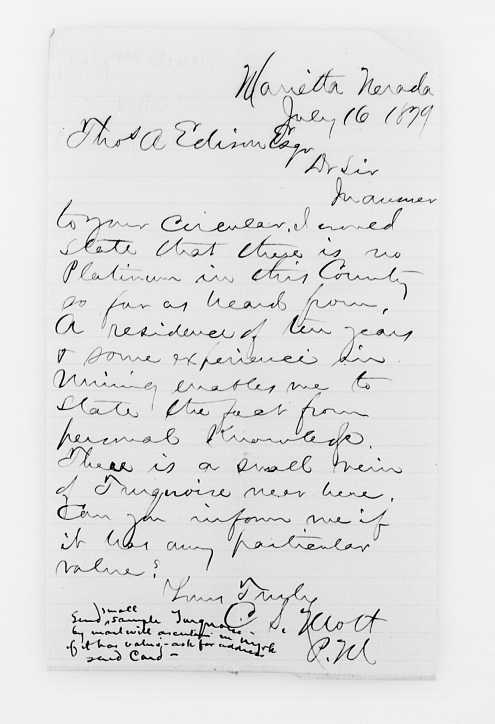 Marietta Nevada
July 16 1879
Thos A Edison Esqr
Dr Sir
In answer
to your Circular, I would
state that there is no
Platinum in this County
so far as heard from,
A residence of ten years
& some experience in
Mining enables me to
state the fact from
personal Knowledge.
There is a small vein
of Turquoise near here,
Can you inform me if
it has any particular
value?
Yours Truly
C. S. Mott
P.M
small
Send sample Turquoise -
by mail will ascertain in NYork
if it has value - ask for address
send Card -